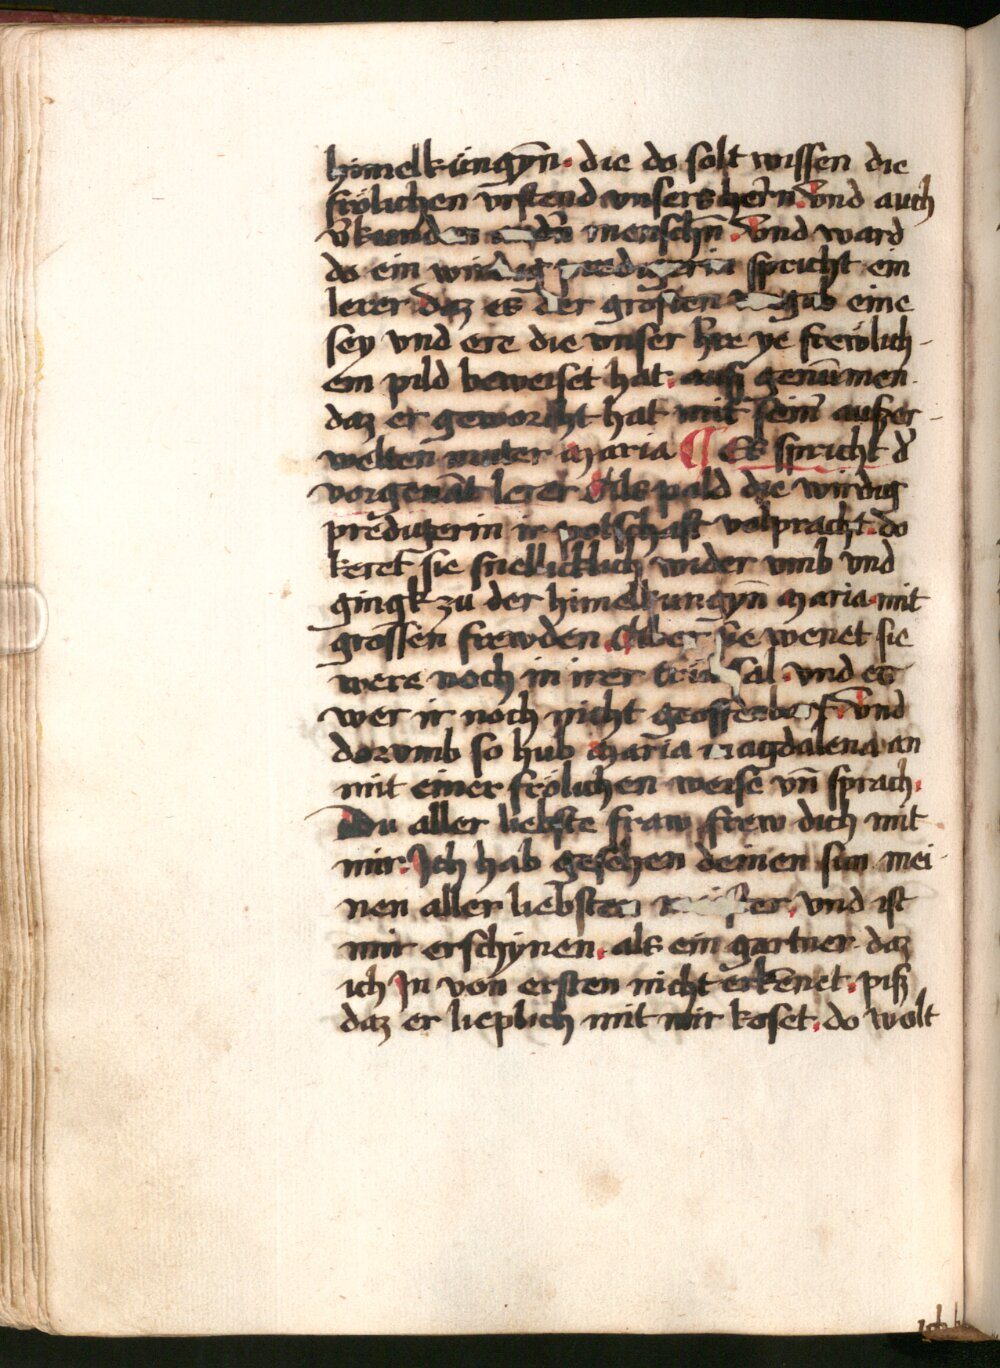 himelküngyn̄. die do solt wissen die
frölichen vrstend vnsers herr̄n. Vnd auch
menschn̄. Vnd ward
do ein wirdig predigerin spricht ein
lerer daz es der grosten gab eine
sey vnd ere die vnser h̄re ye frewlich-
em pild beweiset hat. auß genūmen.
daz er geworcht hat mit sein̄ außer-
welten muter Maria ¶ Es spricht d̄
vorgenāt lerer Als pald die wirdig
predigerin ir potschaft volpracht. do
keret sie snelliclich wider vmb vnd
gingk zu der himelkungyn̄ Maria mit
grossen frewden. Aber sie wenet sie
were noch in irer trüsal. vnd es
wer ir noch nicht geoffenbart. Vnd
dorvmb so hub Maria Magdalena an
mit einer frölichen weise vn̄ sprach.
Du aller liebste fraw frew dich mit
mir. Ich hab gesehen deinen sun mei-
nen aller liebsten meister. Vnd ist
mir erschynen. als ein gartner. daz
ich In von ersten nicht erkēnet. piß
daz er lieplich mit mir koset. do wolt